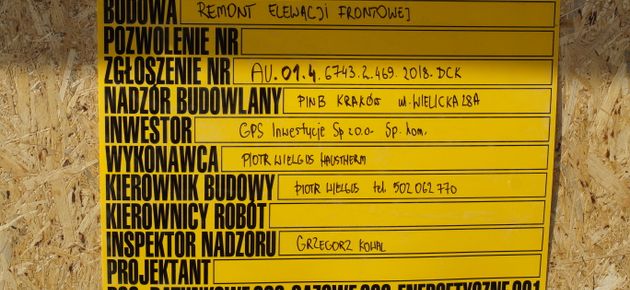 BUDOWA REMONT ELEWACJI FRONTOWEJ
POZWOLENIE NR
ZGŁOSZENIE NR AU.01.4.6743.2.469.2018.DCK
NADZÓR BUDOWLANY PINB KRAKÓW ul. WIELICKA 28A
INWESTOR GPS Inwestycje Sp z o.o. Sp. kom.
WYKONAWCA PIOTR WIELGUS HAUSTHERM
KIEROWNIK BUDOWY PIOTR WIELGUS tel. 502 062 770
KIEROWNICY ROBÓT
INSPEKTOR NADZORU GRZEGORZ KOWAL
PROJEKTANT